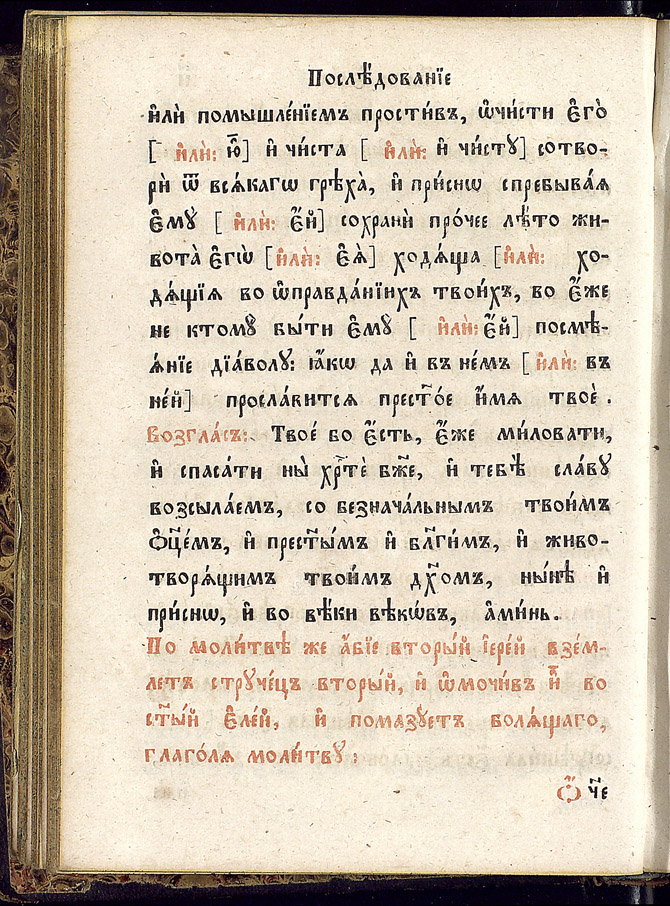 Послѣ́дованїе
и҆лѝ помышле́нїемъ прости́въ, ѡ҆чи́сти є҆го̀
[ и҆лѝ: ю҆̀] и҆ чи́ста [ и҆лѝ: и҆ чи́стꙋ] сотво-
рѝ ѿ всѧ́кагѡ грѣха̀, и҆ при́снѡ спребыва́ѧ
є҆мꙋ̀ [ и҆лѝ: є҆́й] сохранѝ про́чее лѣ́то жи-
вота̀ є҆гѡ̀ [и҆лѝ: є҆ѧ̀] ходѧ́ща [и҆лѝ: хо-
дѧ́щїѧ во ѡ҆правда́нїихъ твои́хъ, во є҆́же
не ктомꙋ̀ бы́ти є҆мꙋ̀ [ и҆лѝ: є҆́й] посмѣ-
ѧ́нїе дїа́волꙋ: ꙗ҆́кѡ да и҆ въ не́мъ [ и҆лѝ: въ
не́й] просла́вится прест҃о́е и҆́мѧ твоѐ.
Возгла́съ: Твое́ бо є҆́сть, є҆́же ми́ловати,
и҆ спаса́ти ны̀ хрⷭ҇тѐ бж҃е, и҆ тебѣ̀ сла́вꙋ
возсыла́емъ, со безнача́льнымъ твои́мъ
Ѻ҆ц҃е́мъ, и҆ прест҃ы́мъ и҆ бл҃ги́мъ, и҆ живо-
творѧ́щимъ твои́мъ дх҃омъ, ны́нѣ и҆
при́снѡ, и҆ во вѣ́ки вѣкѡ́въ, а҆ми́нь.
По моли́твѣ же а҆́бїе вторы́й і҆ере́й взе́м-
летъ стрꙋче́цъ вторы́й, и҆ ѡ҆мочи́въ и҆̀ во
ст҃ы́й є҆ле́й, и҆ помазꙋетъ болѧ́щаго,
глаго́лѧ моли́твꙋ:
Ѽ ч҃е